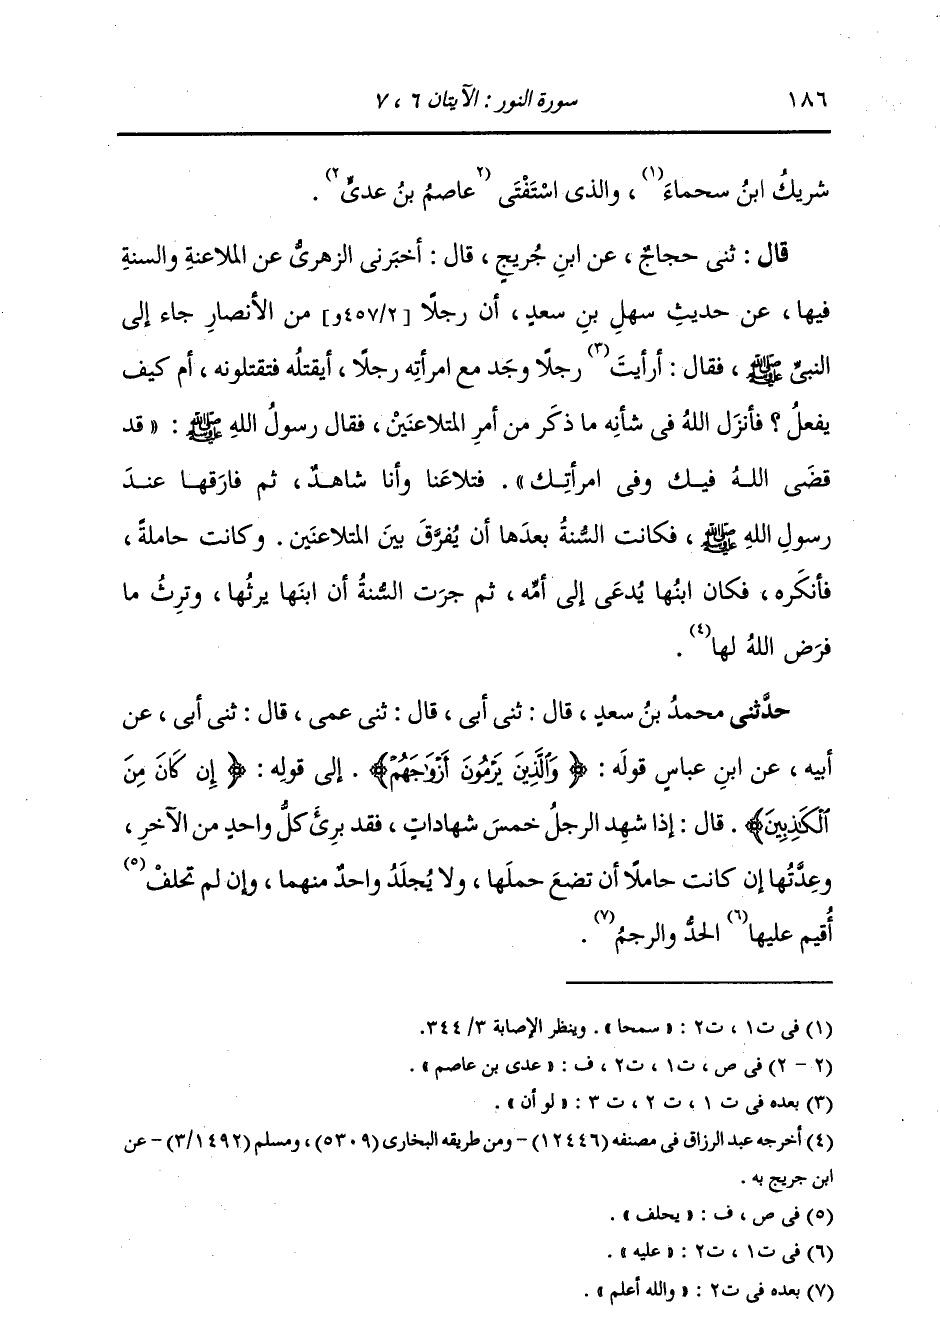 ١٨٦ سورة النور : الآيتان ٦ ، ٧
شريكُ ابنُ سحماءَ(١) ، والذى اسْتَفْتَى (٢عاصمُ بنُ عدىٍّ٢) .
قال : ثنى حجاجٌ ، عن ابنِ جُريجٍ ، قال : أخبَرنى الزهرىُّ عن الملاعنةِ والسنةِ
فيها ، عن حديثِ سهلِ بنِ سعدٍ ، أن رجلًا [٤٥٧/٢و] من الأنصارِ جاء إلى
النبىِّ ﷺ ، فقال : أرأيتَ(٣) رجلًا وجَد مع امرأتِه رجلًا ، أيقتلُه فتقتلونه ، أم كيف
يفعلُ ؟ فأنزَل اللهُ فى شأنِه ما ذكَر من أمرِ المتلاعنَيْن ، فقال رسولُ اللهِ ﷺ : « قد
قضَى اللهُ فيك وفى امرأتِك » . فتلاعَنا وأنا شاهدٌ ، ثم فارَقها عندَ
رسولِ اللهِ ﷺ ، فكانت السُّنةُ بعدَها أن يُفرَّقَ بينَ المتلاعنَين . وكانت حاملةً ،
فأنكَره ، فكان ابنُها يُدعَى إلى أمِّه ، ثم جرَت السُّنةُ أن ابنَها يرثُها ، وترِثُ ما
فرَض اللهُ لها(٤) .
حدَّثنى محمدُ بنُ سعدٍ ، قال : ثنى أبى ، قال : ثنى عمى ، قال : ثنى أبى ، عن
أبيه ، عن ابنِ عباسٍ قولَه : ﴿ وَٱلَّذِينَ يَرْمُونَ أَزْوَٰجَهُمْ﴾ . إلى قولِه : ﴿ إِن كَانَ مِنَ
ٱلْكَٰذِبِينَ﴾ . قال : إذا شهِد الرجلُ خمسَ شهاداتٍ ، فقد برِئَ كلُّ واحدٍ من الآخرِ ،
وعِدَّتُها إن كانت حاملًا أن تضعَ حملَها ، ولا يُجلَدُ واحدٌ منهما ، وإن لم تحلفْ(٥)
أُقيم عليها(٦) الحدُّ والرجمُ(٧) .
(١) فى ت١ ، ت٢ : « سمحا » . وينظر الإصابة ٣/ ٣٤٤.
(٢ - ٢) فى ص ، ت١ ، ت٢ ، ف : « عدى بن عاصم » .
(٣) بعده فى ت ١ ، ت ٢ ، ت ٣ : « لو أن » .
(٤) أخرجه عبد الرزاق فى مصنفه (١٢٤٤٦) - ومن طريقه البخارى (٥٣٠٩) ، ومسلم (٣/١٤٩٢) - عن
ابن جريج به .
(٥) فى ص ، ف : « يحلف » .
(٦) فى ت١ ، ت٢ : « عليه » .
(٧) بعده فى ت٢ : « والله أعلم » .